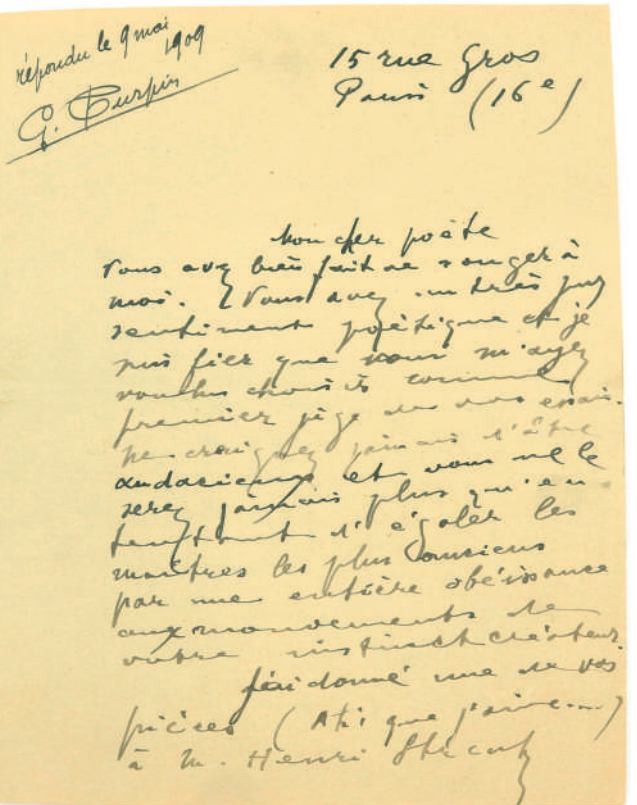 répondu le 9 mai
1909
G. Turpin
15 rue Gros
Paris (16e)
Mon cher poète
Vous avez bien fait de songer à
moi. Vous avez un très pur
sentiment poétique et je
suis fier que vous m'ayez
voulu choisir comme
premier juge de vos essais.
Ne craignez jamais d'être
audacieux et vous ne le
serez jamais plus qu'en
tentant d'égaler les
maîtres les plus anciens
par une entière obéissance
aux mouvements de
votre instinct créateur.
J'ai donné une de vos
pièces (Ah! que j'aime...)
à M. Henri